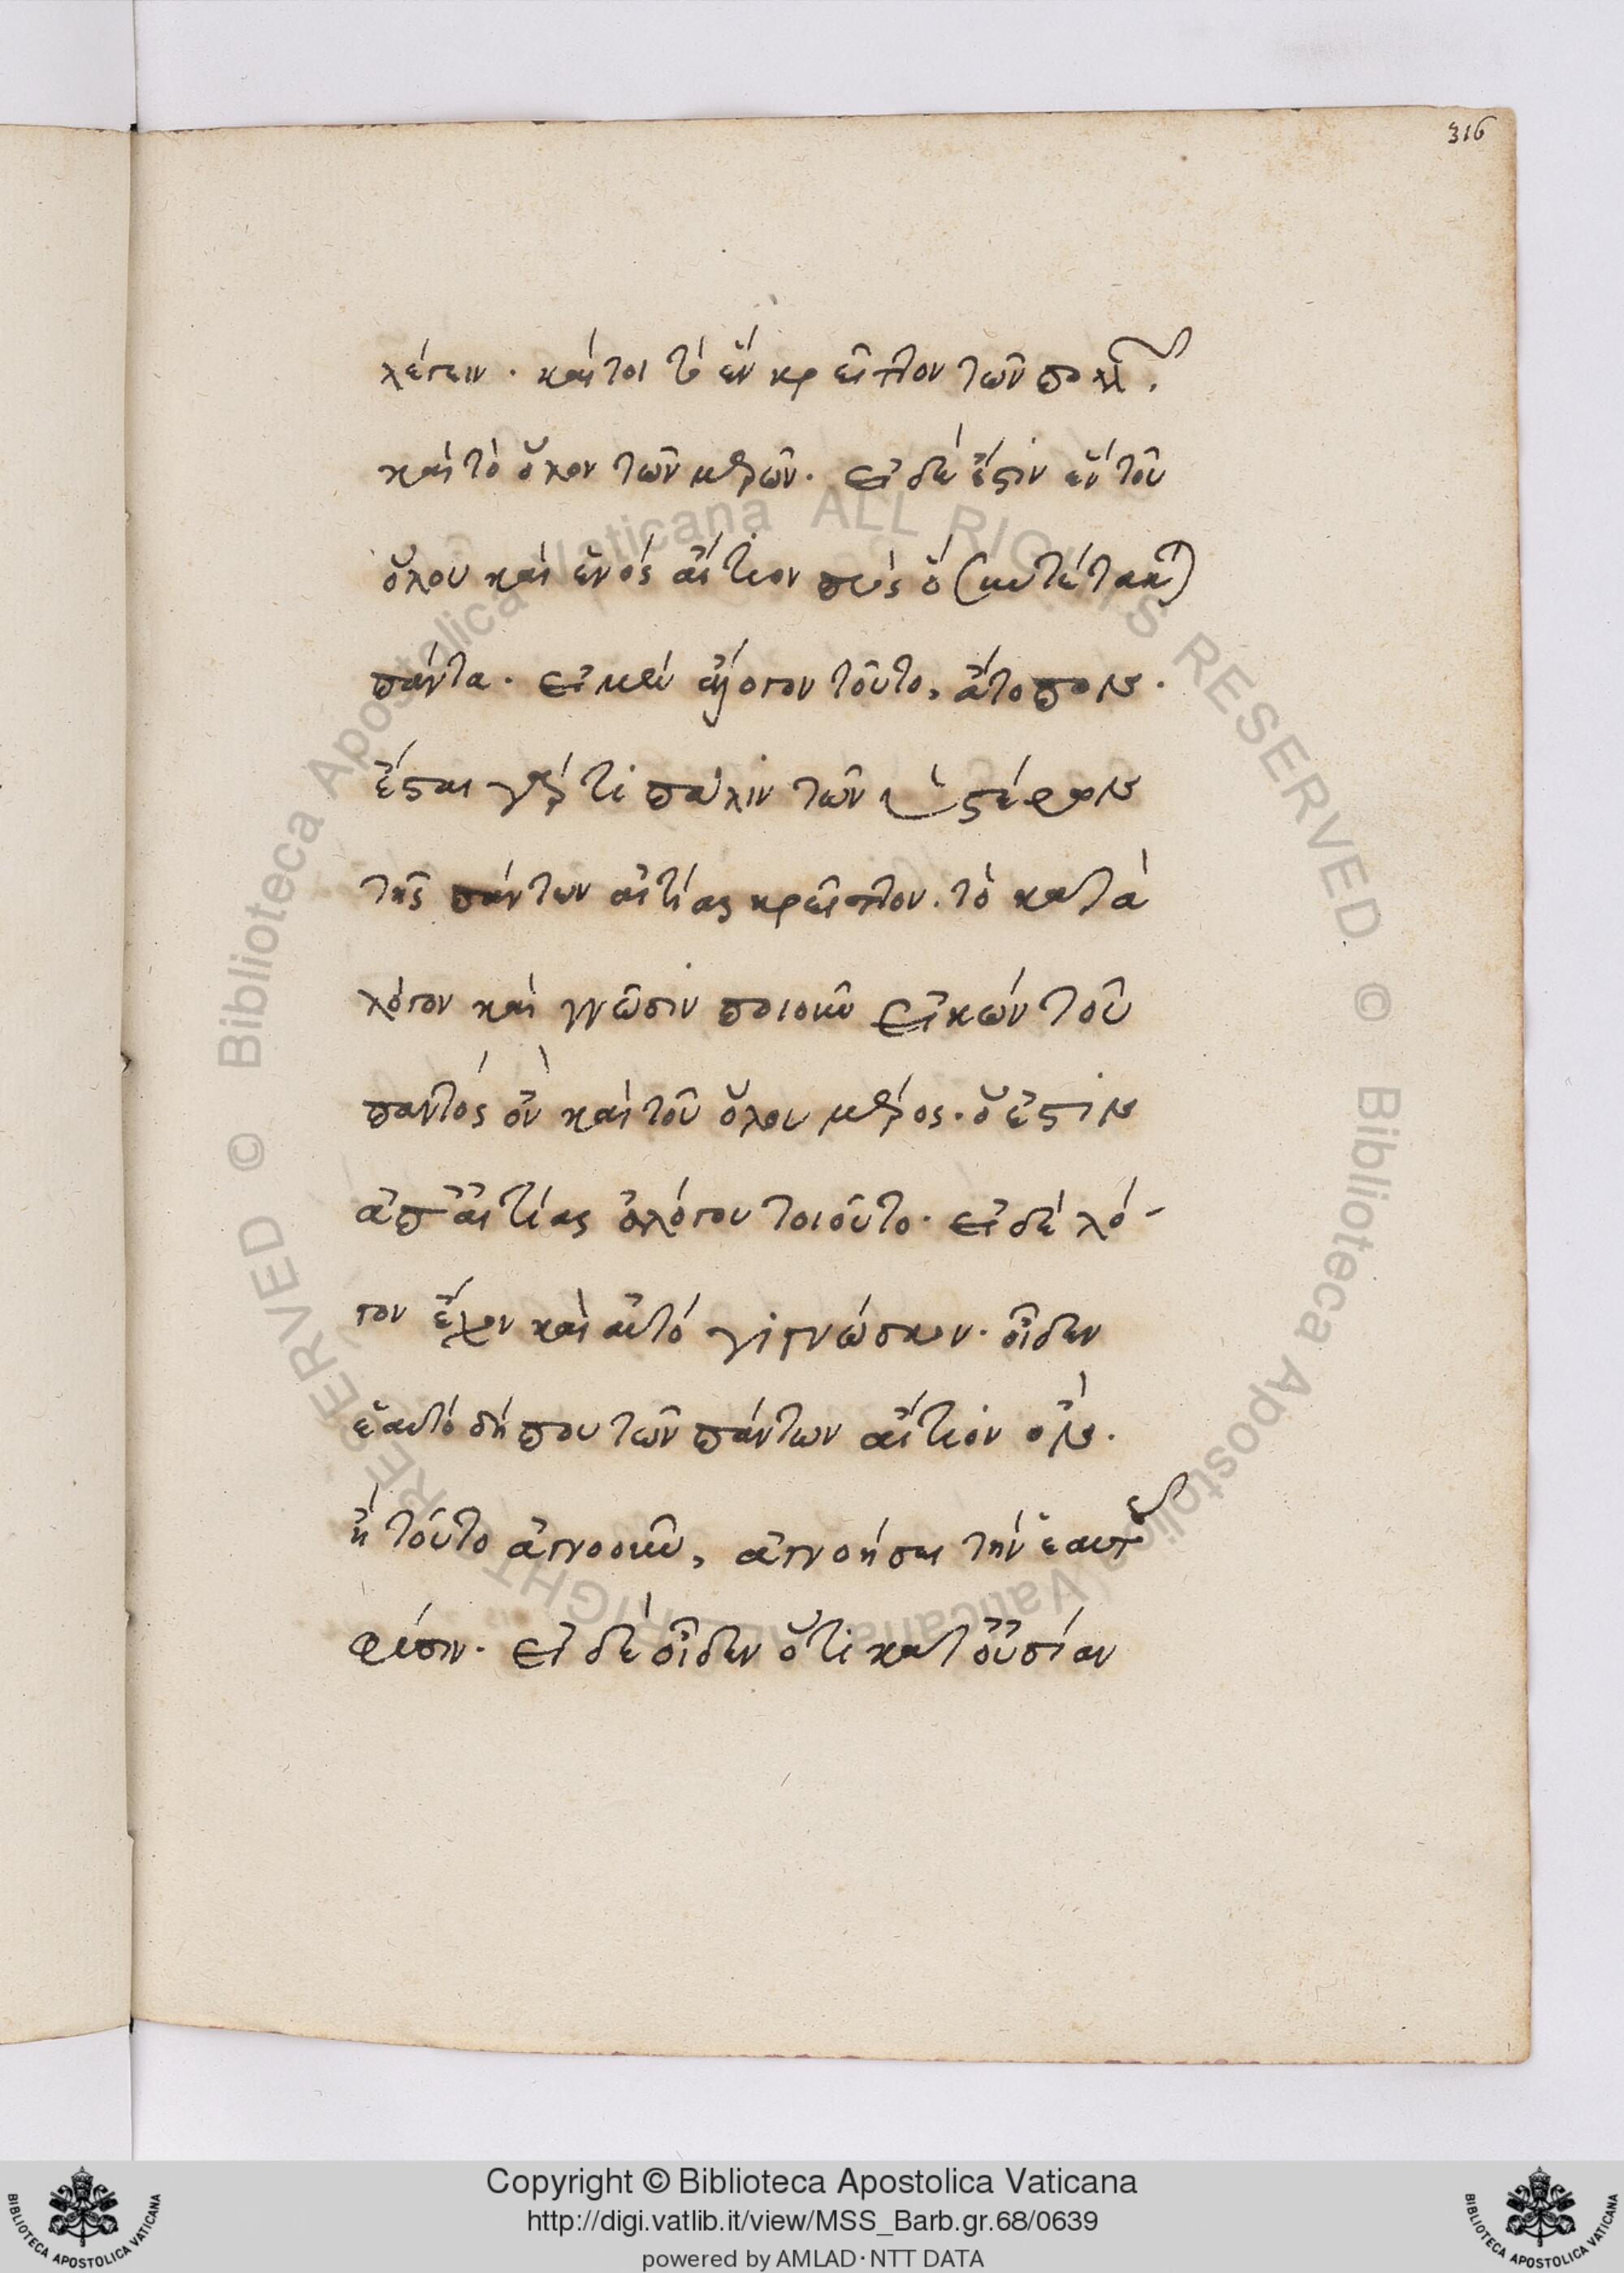 316
λέγειν. καίτοι τὸ ἓν κρεῖττον τῶν πολλῶν.
καὶ τὸ ὅλον τῶν μερῶν. εἰ δέ ἐστιν ἓν τοῦ
ὅλου καὶ ἑνὸς αἴτιον πρὸς ὃ συντέτακται
πάντα. εἰ μὲν ἄλογον τοῦτο, ἄτοπον.
ἔσται γάρ τι πάλιν τῶν ὑστέρων
τῆς πάντων αἰτίας κρεῖττον. τὸ κατὰ
λόγον καὶ γνῶσιν ποιοῦν εἰκὼν τοῦ
παντὸς ὂν καὶ τοῦ ὅλου μέρος. ὅ ἐστιν
ἀπ' αἰτίας ἀλόγου τοιοῦτο. εἰ δὲ λό-
γον ἔχον καὶ αὐτὸ γιγνώσκον. οἶδεν
ἑαυτὸ δήπου τῶν πάντων αἴτιον ὄν.
ἢ τοῦτο ἀγνοοῦν, ἀγνοήσει τὴν ἑαυτοῦ
φύσιν. εἰ δὲ οἶδεν ὅτι κατ' οὐσίαν
Copyright © Biblioteca Apostolica Vaticana
http://digi.vatlib.it/view/MSS_Barb.gr.68/0639
powered by AMLAD·NTT DATA
© Biblioteca Apostolica Vaticana ALL RIGHTS RESERVED
© Biblioteca Apostolica Vaticana ALL RIGHTS RESERVED
BIBLIOTECA APOSTOLICA VATICANA
BIBLIOTECA APOSTOLICA VATICANA